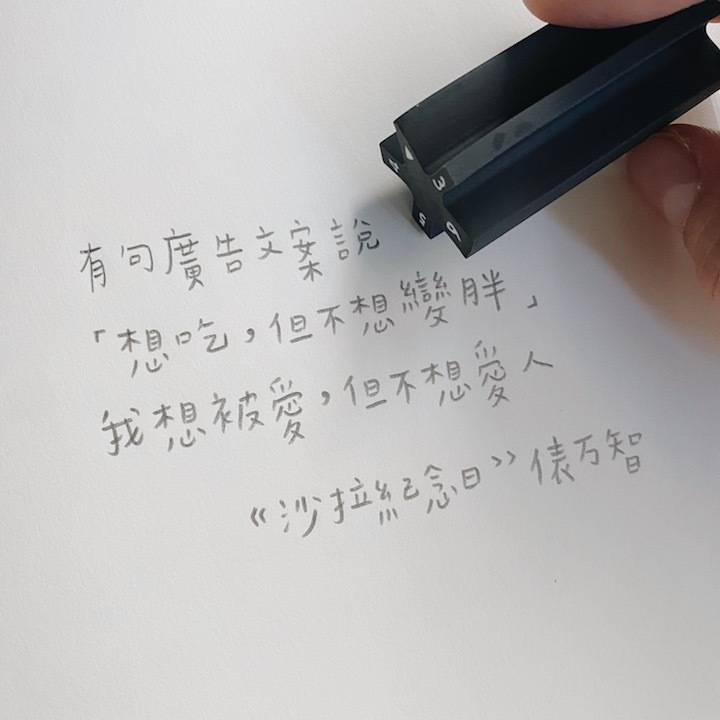 有句廣告文案說
「想吃,但不想變胖」
我想被愛,但不想愛人
《沙拉紀念日》俵万智
4 3
5 6